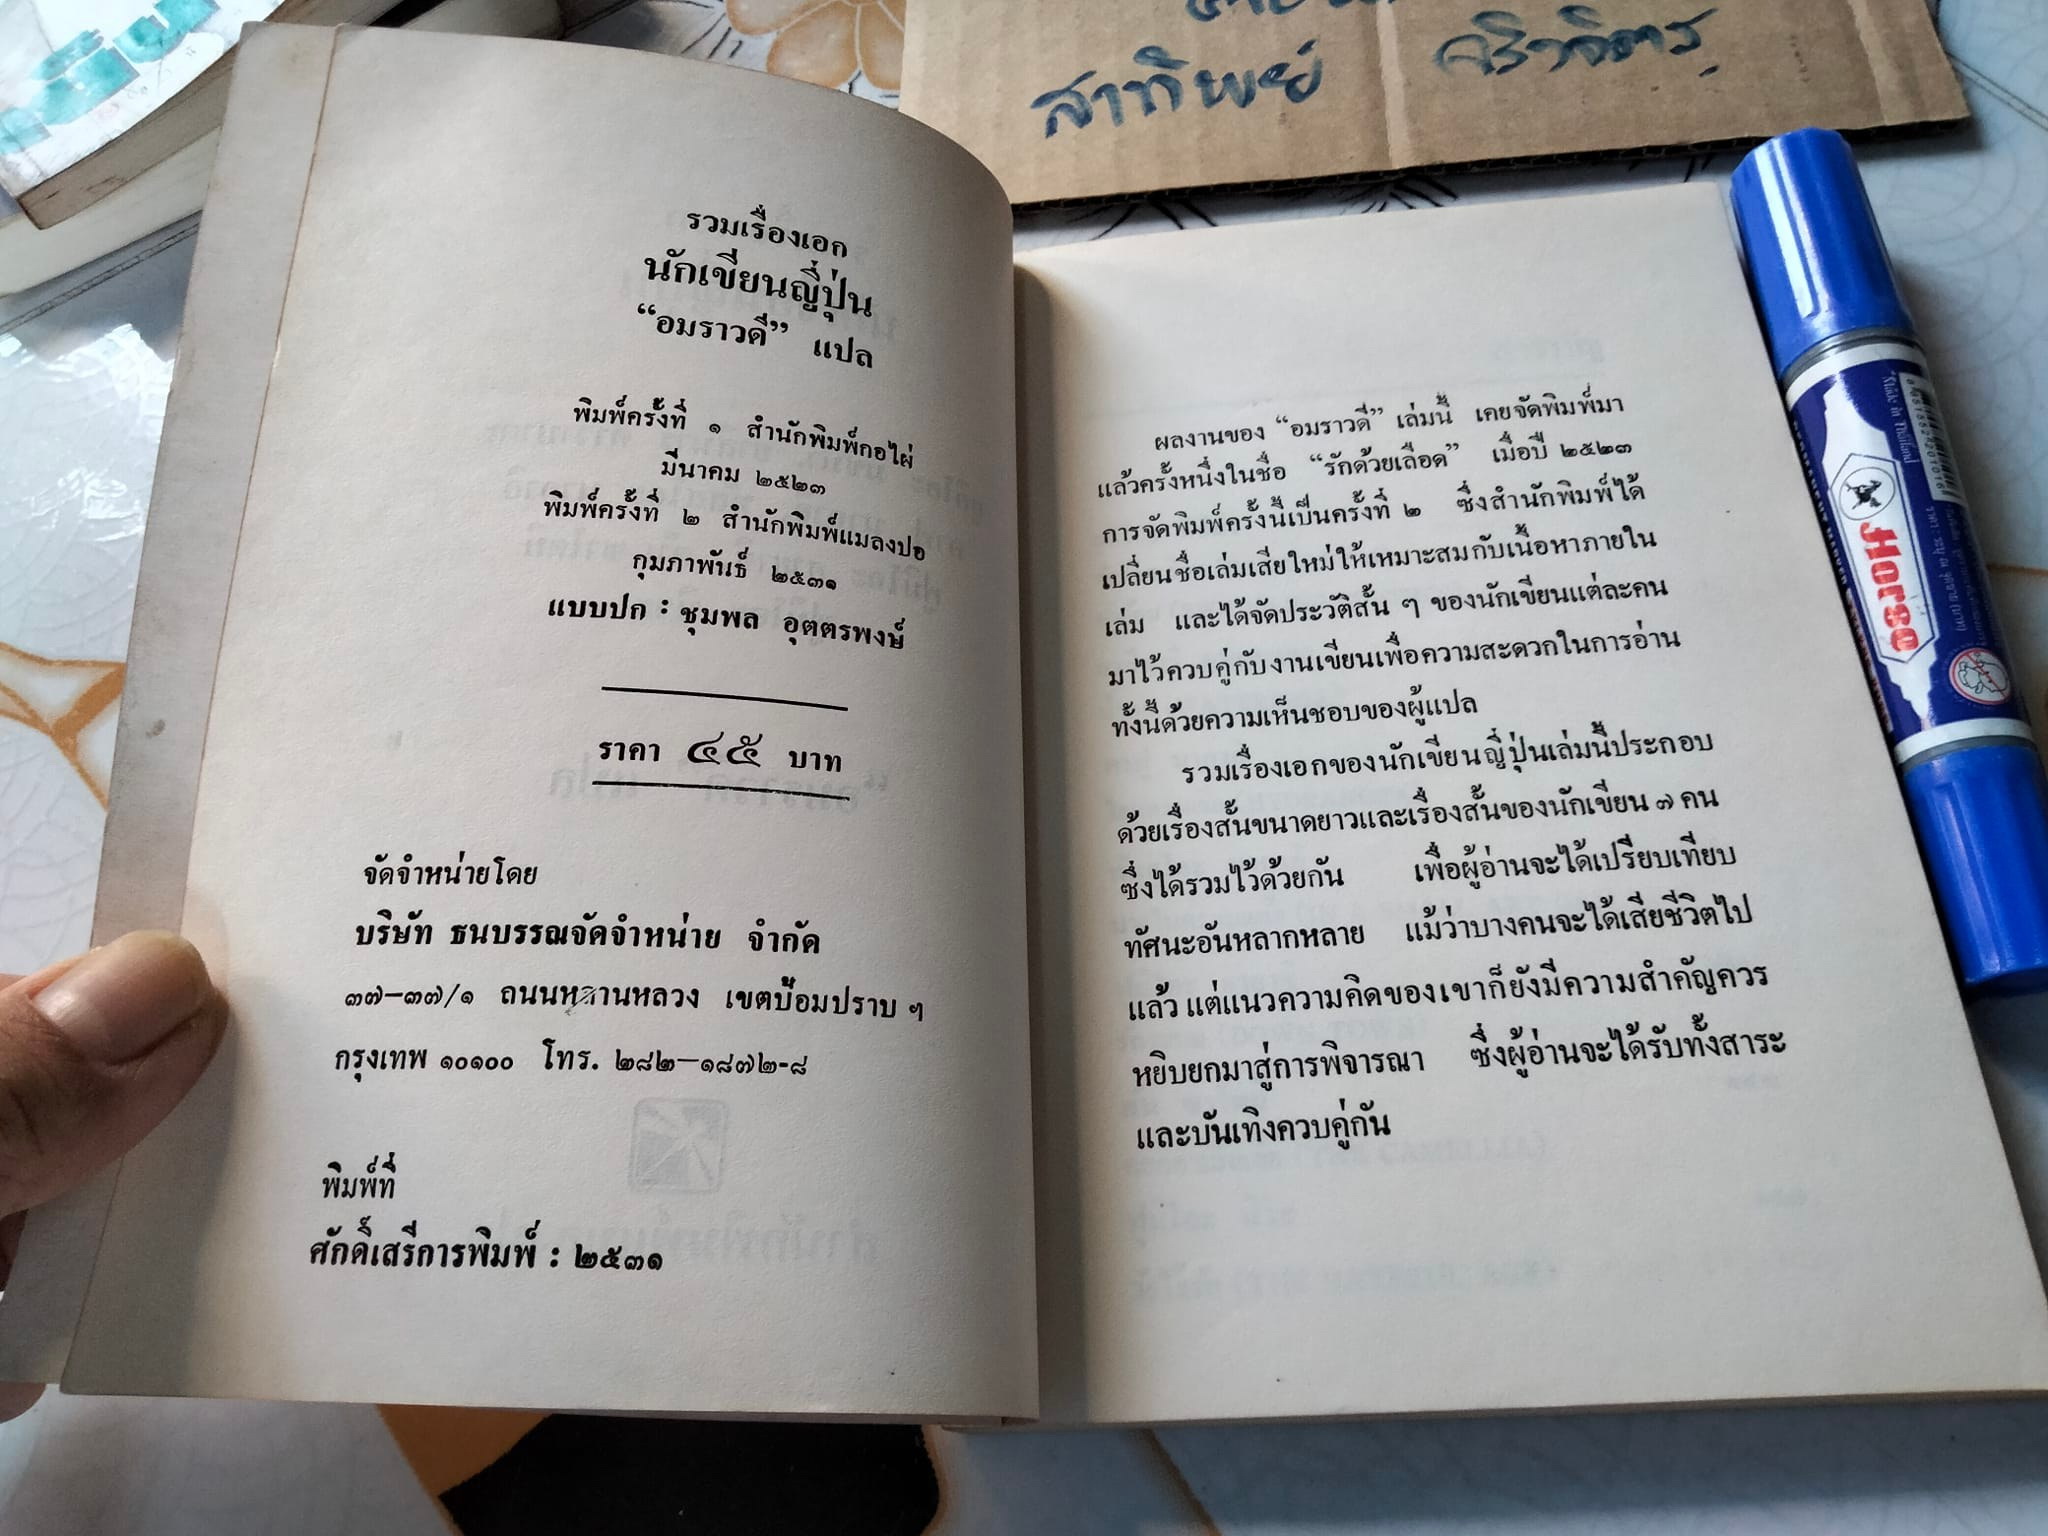 สาทิพย์
รวมเรื่องเอก
นักเขียนญี่ปุ่น
“อมราวดี” แปล
พิมพ์ครั้งที่ ๑ สำนักพิมพ์กอไผ่
มีนาคม ๒๕๒๓
พิมพ์ครั้งที่ ๒ สำนักพิมพ์แมลงปอ
กุมภาพันธ์ ๒๕๓๑
แบบปก : ชุมพล อุตตรพงษ์
ราคา ๔๕ บาท
จัดจำหน่ายโดย
บริษัท ธนบรรณจัดจำหน่าย จำกัด
๓๗–๓๗/๑ ถนนหลานหลวง เขตป้อมปราบ ฯ
กรุงเทพ ๑๐๑๐๐ โทร. ๒๘๒–๑๘๗๒-๘
พิมพ์ที่
ศักดิ์เสรีการพิมพ์ : ๒๕๓๑
ผลงานของ “อมราวดี” เล่มนี้ เคยจัดพิมพ์มา
แล้วครั้งหนึ่งในชื่อ “รักด้วยเลือด” เมื่อปี ๒๕๒๓
การจัดพิมพ์ครั้งนี้เป็นครั้งที่ ๒ ซึ่งสำนักพิมพ์ได้
เปลี่ยนชื่อเล่มเสียใหม่ให้เหมาะสมกับเนื้อหาภายใน
เล่ม และได้จัดประวัติสั้น ๆ ของนักเขียนแต่ละคน
มาไว้ควบคู่กับงานเขียนเพื่อความสะดวกในการอ่าน
ทั้งนี้ด้วยความเห็นชอบของผู้แปล
รวมเรื่องเอกของนักเขียนญี่ปุ่นเล่มนี้ประกอบ
ด้วยเรื่องสั้นขนาดยาวและเรื่องสั้นของนักเขียน ๗ คน
ซึ่งได้รวมไว้ด้วยกัน เพื่อผู้อ่านจะได้เปรียบเทียบ
ทัศนะอันหลากหลาย แม้ว่าบางคนจะได้เสียชีวิตไป
แล้ว แต่แนวความคิดของเขาก็ยังมีความสำคัญควร
หยิบยกมาสู่การพิจารณา ซึ่งผู้อ่านจะได้รับทั้งสาระ
และบันเทิงควบคู่กัน
Horse
Made in Thailand